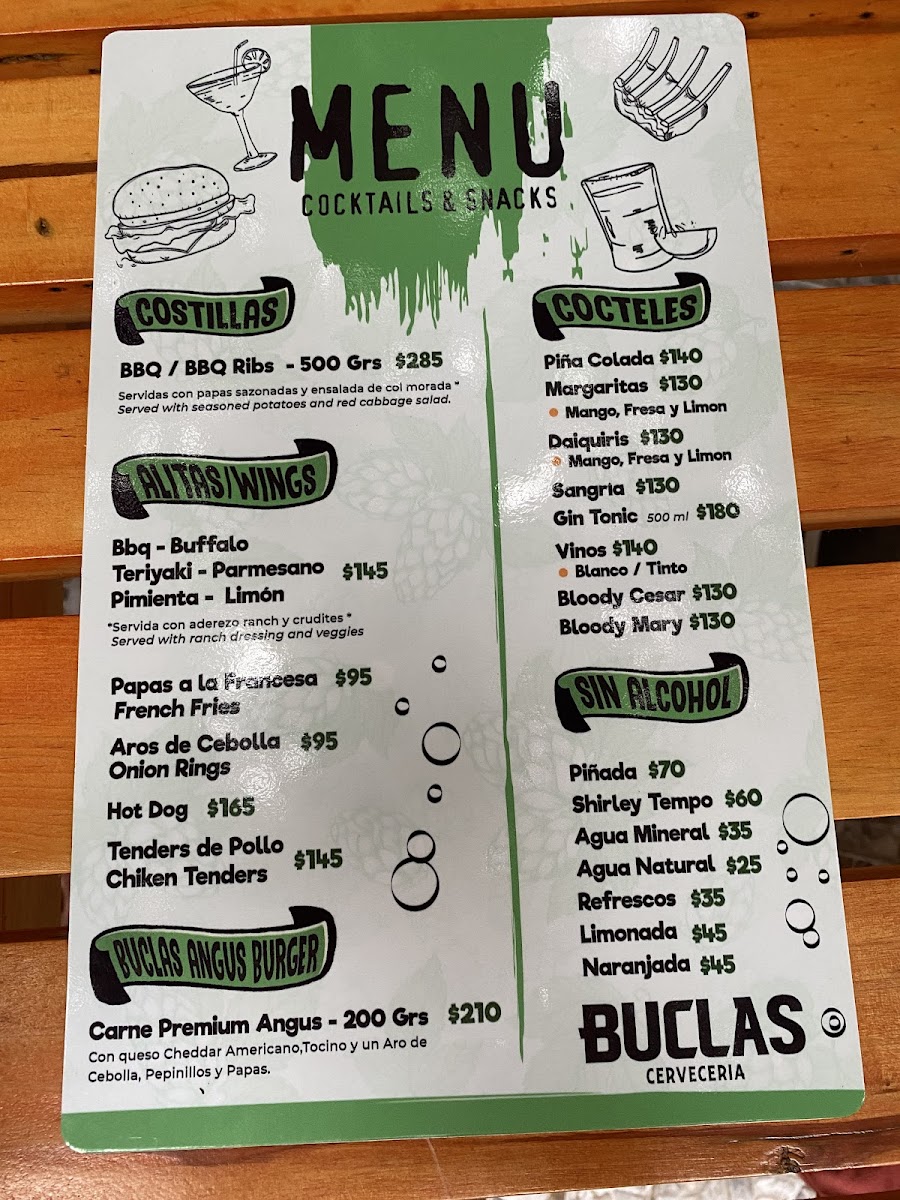 MENU
COCKTAILS & SNACKS
COSTILLAS
BBQ / BBQ Ribs - 500 Grs $285
Servidas con papas sazonadas y ensalada de col morada *
Served with seasoned potatoes and red cabbage salad.
ALITAS/WINGS
Bbq - Buffalo
Teriyaki - Parmesano $145
Pimienta - Limón
*Servida con aderezo ranch y crudites *
Served with ranch dressing and veggies
Papas a la Francesa $95
French Fries
Aros de Cebolla $95
Onion Rings
Hot Dog $165
Tenders de Pollo $145
Chiken Tenders
BUCLAS ANGUS BURGER
Carne Premium Angus - 200 Grs $210
Con queso Cheddar Americano,Tocino y un Aro de
Cebolla, Pepinillos y Papas.
COCTELES
Piña Colada $140
Margaritas $130
Mango, Fresa y Limon
Daiquiris $130
Mango, Fresa y Limon
Sangria $130
Gin Tonic 500 ml $180
Vinos $140
Blanco / Tinto
Bloody Cesar $130
Bloody Mary $130
SIN ALCOHOL
Piñada $70
Shirley Tempo $60
Agua Mineral $35
Agua Natural $25
Refrescos $35
Limonada $45
Naranjada $45
BUCLAS
CERVECERIA